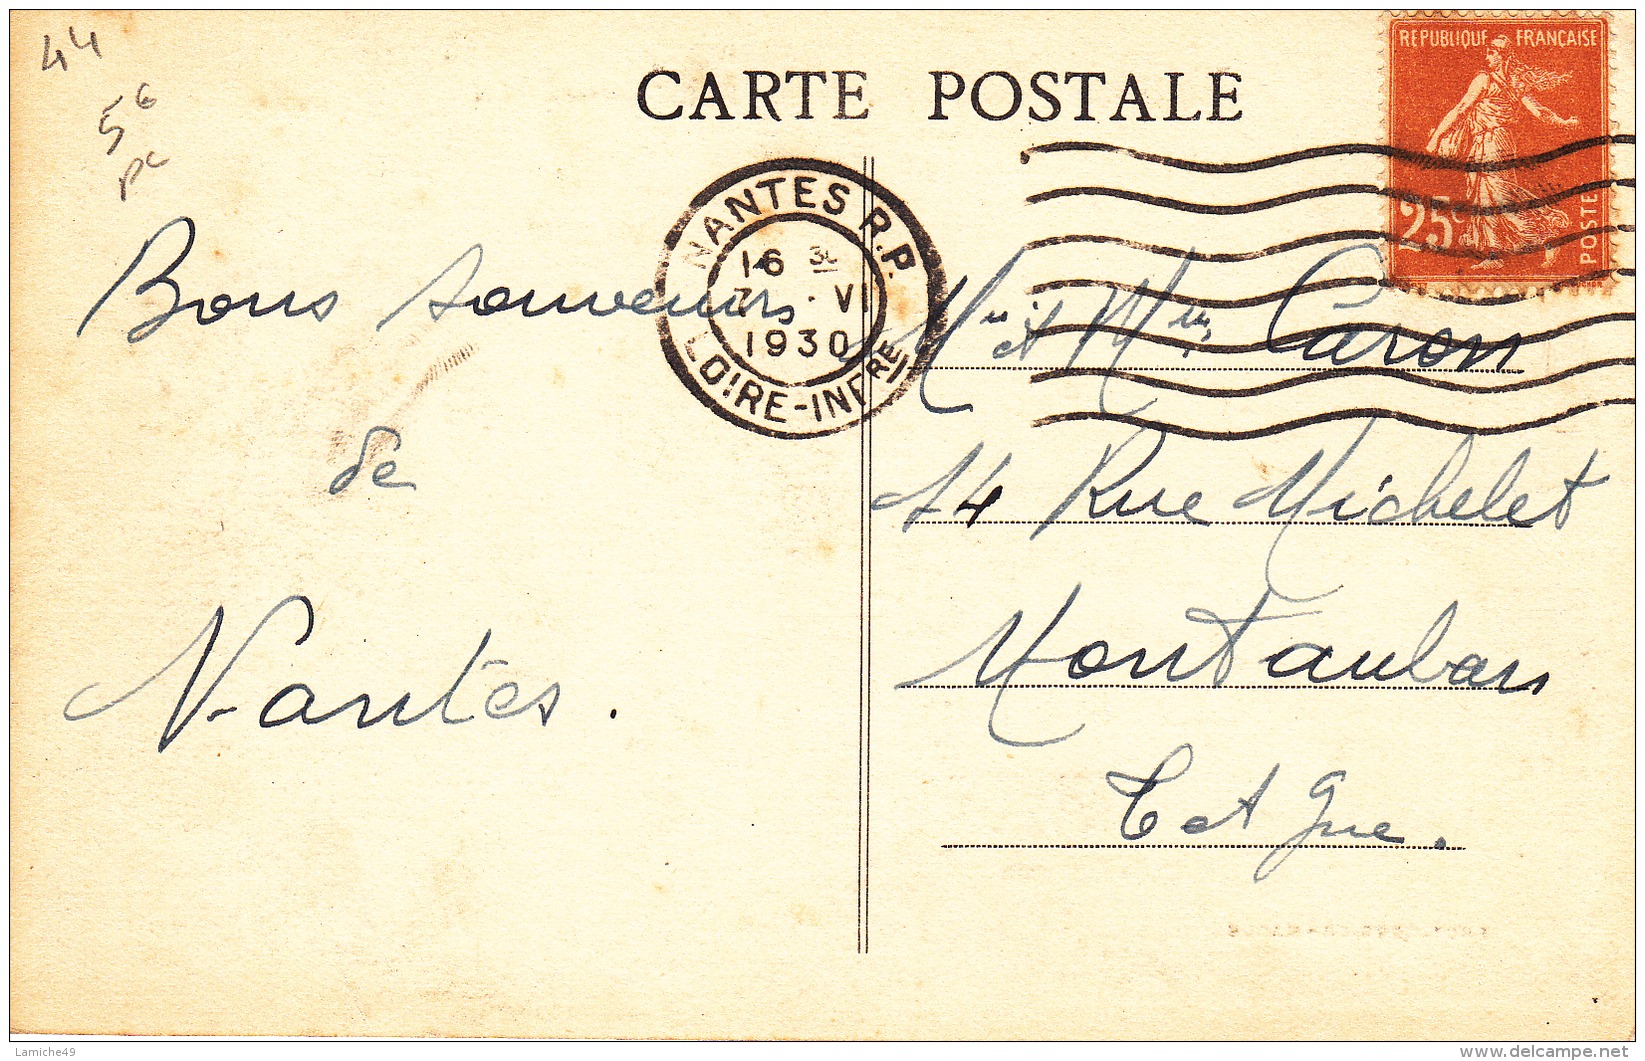 44
5€
pc
CARTE POSTALE
REPUBLIQUE FRANÇAISE
25c
POSTES
NANTES R.P.
16 30
7 · VI
1930
LOIRE-INFRE
Bons souvenirs
de
Nantes.
Mr et Mme Caron
14 Rue Michelet
Montauban
T et Gne.
Lamiche49
delcampe.net